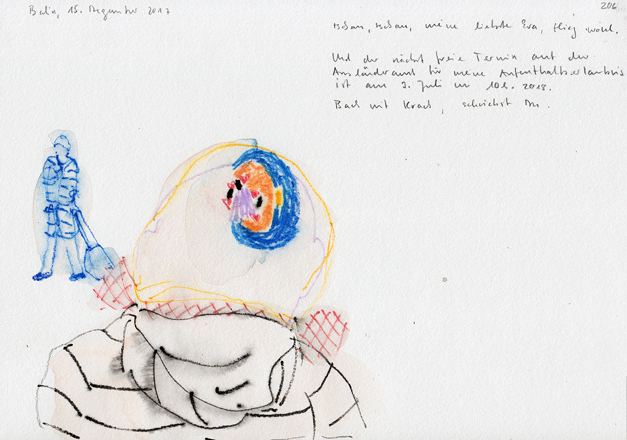 206.
Berlin, 15. Dezember 2017
meine liebste Eva, flieg wohl.
Und der nächst freie Termin auf der
Ausländeramt für meine Aufenthaltserlaubnis
ist am 3. Juli um 10h. 2018.
Bach mit Krach, schreibst Du.